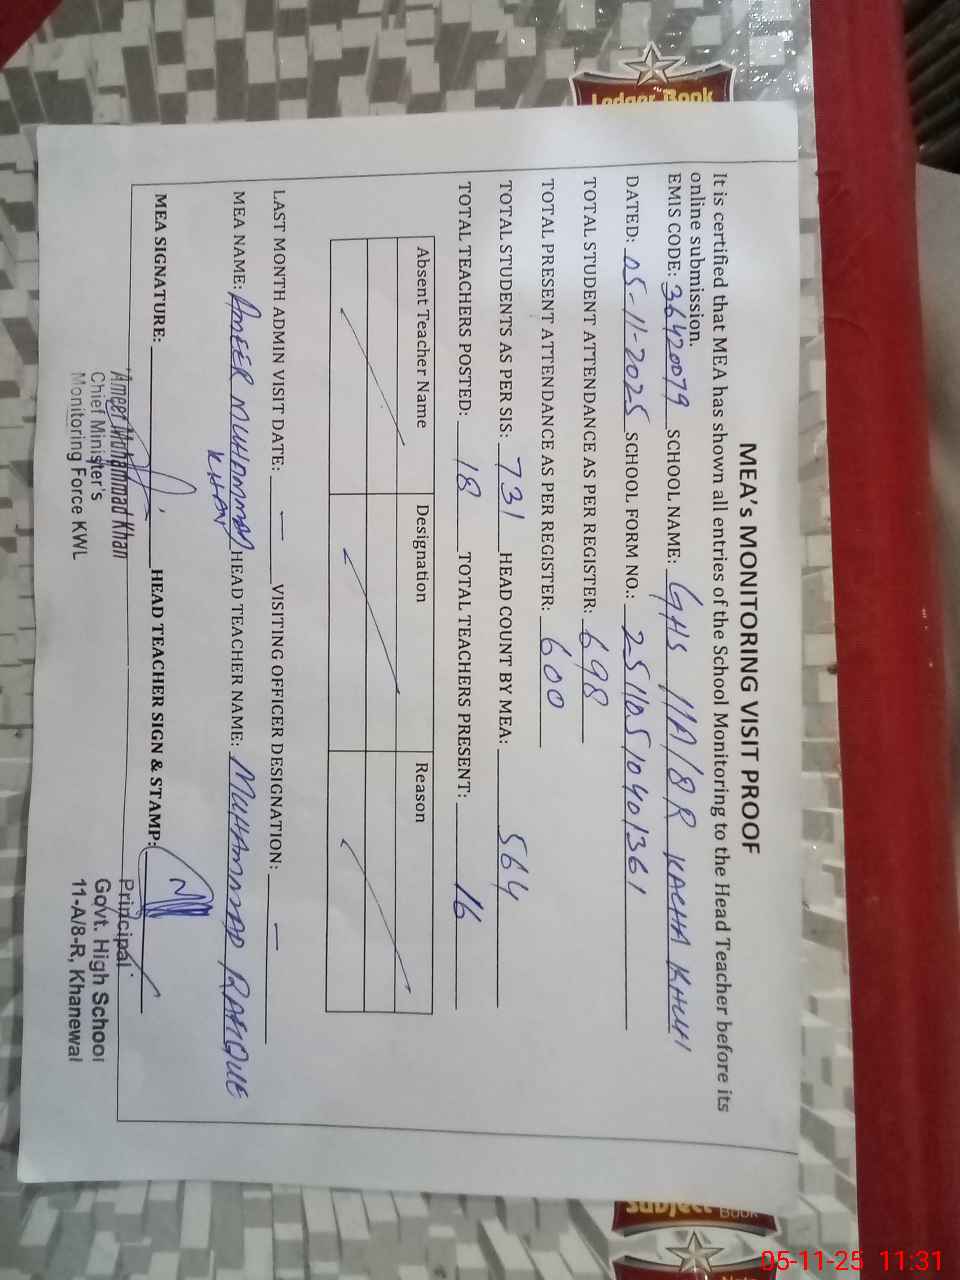 Ledger Book
MEA's MONITORING VISIT PROOF
It is certified that MEA has shown all entries of the School Monitoring to the Head Teacher before its
online submission.
EMIS CODE: 36420079 SCHOOL NAME: GHS 11A/8R KACHA KHUH
DATED: 05-11-2025 SCHOOL FORM NO.: 25110510401361
TOTAL STUDENT ATTENDANCE AS PER REGISTER: 698
TOTAL PRESENT ATTENDANCE AS PER REGISTER: 600
TOTAL STUDENTS AS PER SIS: 731 HEAD COUNT BY MEA: 564
TOTAL TEACHERS POSTED: 18 TOTAL TEACHERS PRESENT: 16
Absent Teacher Name Designation Reason
LAST MONTH ADMIN VISIT DATE: — VISITING OFFICER DESIGNATION: —
MEA NAME: AMEER MUHAMMAD KHAN HEAD TEACHER NAME: MUHAMMAD RAFIQUE
MEA SIGNATURE: HEAD TEACHER SIGN & STAMP:
Ameer Muhammad Khan
Chief Minister's
Monitoring Force KWL
Principal
Govt. High School
11-A/8-R, Khanewal
Subject Book
05-11-25 11:31